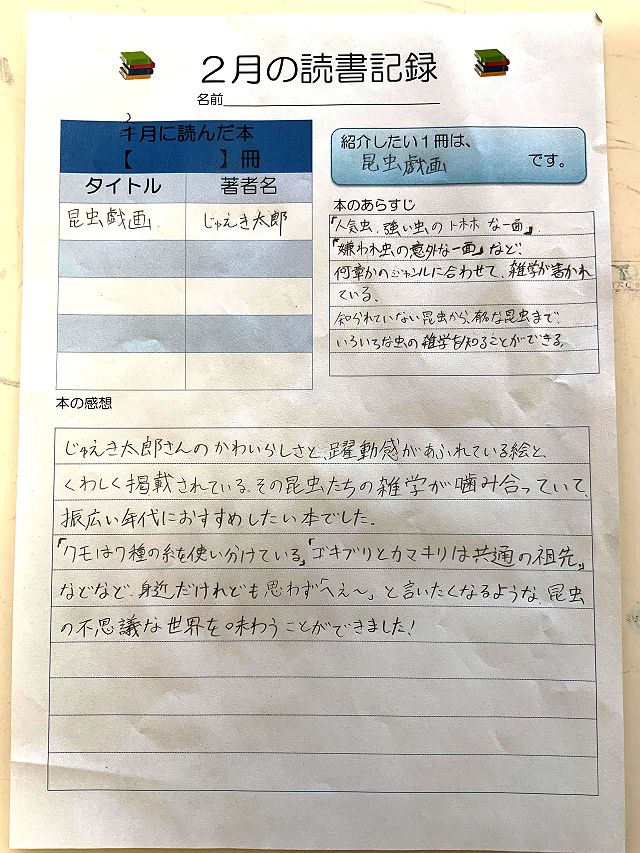 2月の読書記録
名前
2月に読んだ本
【 】冊
タイトル 著者名
昆虫戯画 じゅえき太郎
紹介したい1冊は、
昆虫戯画 です。
本のあらすじ
『人気虫、強い虫のトホホな一面』
『嫌われ虫の意外な一面』など、
何章かのジャンルに合わせて、雑学が書かれ
ている。
知られていない昆虫から、有名な昆虫まで
いろいろな虫の雑学を知ることができる。
本の感想
じゅえき太郎さんのかわいらしさと、躍動感があふれている絵と、
くわしく掲載されている、その昆虫たちの雑学が噛み合っていて、
振広い年代におすすめしたい本でした。
『クモは7種の糸を使い分けている』『ゴキブリとカマキリは共通の祖先』
などなど、身近だけれども思わず「へぇ〜」と言いたくなるような、昆虫
の不思議な世界を味わうことができました!